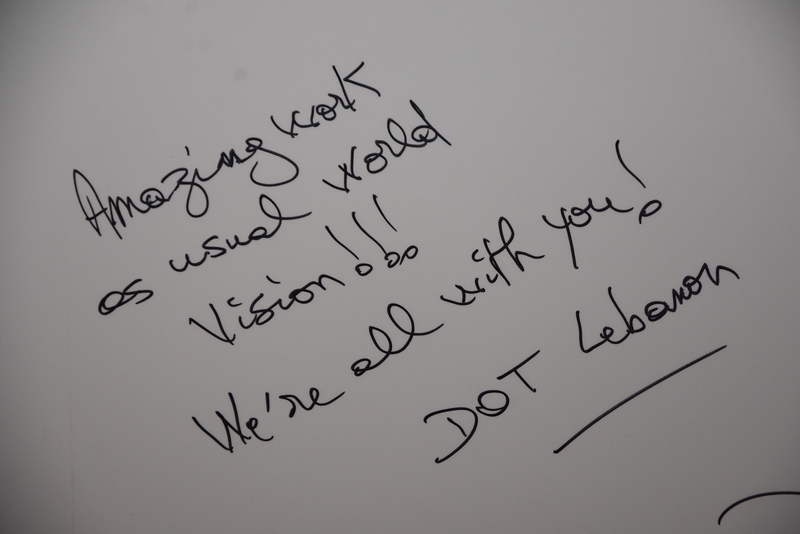 Amazing work
as usual World
Vision!!!
We're all with you!
DOT Lebanon